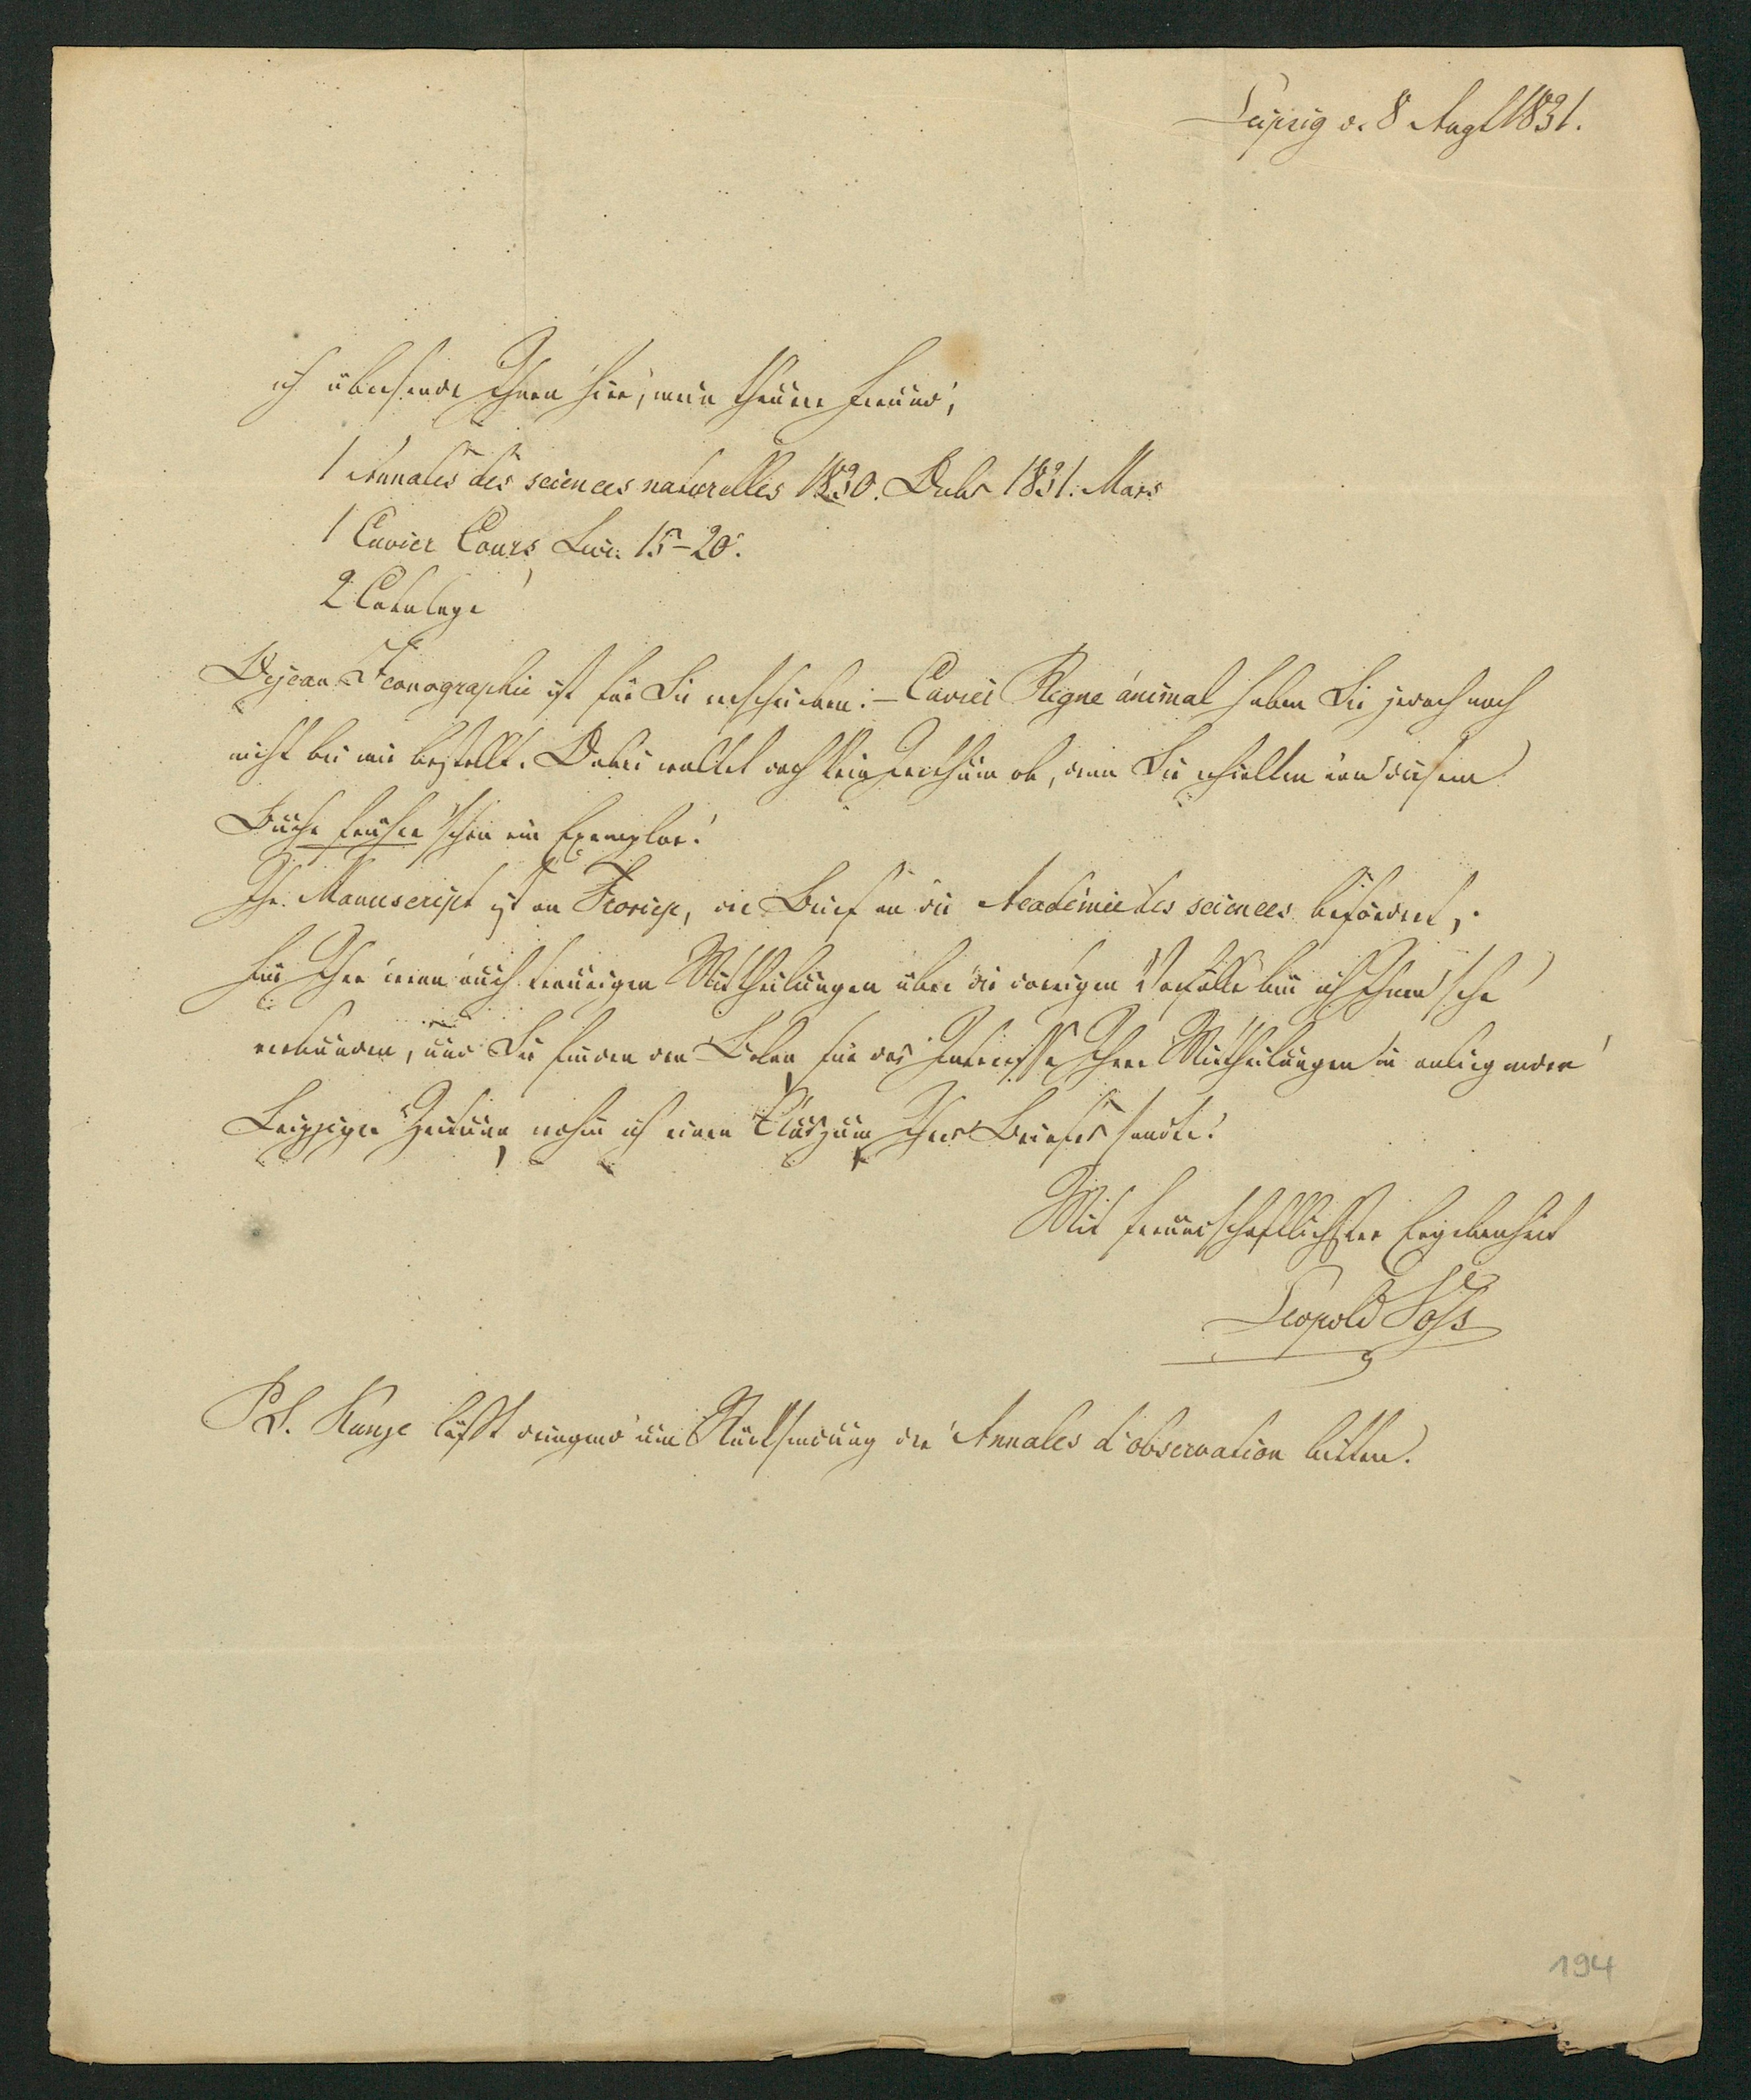 Leipzig d. 8 Augst 1831.
ich übersende Ihnen hier, mein theurer Freund,
1 Annales des sciences naturelles 1830. Decbr 1831. Mars
1 Cuvier Cours Livr. 15–20.
2 Cataloge
Dejean Iconographie ist für Sie verschrieben. – Cuvier Règne animal haben Sie jedoch noch
nicht bei mir bestellt. Dabei waltet doch kein Irrthum ob, denn Sie erhielten von diesem
Buche früher schon ein Exemplar.
Ihr Manuscript ist an Froriep, der Brief an die Académie des sciences befördert,
Für Ihre wenn auch traurigen Mittheilungen über die dortigen Vorfälle bin ich Ihnen sehr
verbunden, und Sie finden den Beleg für das Interesse Ihrer Mittheilungen in anliegender
Leipziger Zeitung wohin ich einen Auszug Ihres Briefes sandte.
Mit freundschaftlichster Ergebenheit
Leopold Voß
PS. Kunze läßt dringend um Rücksendung der Annales d'observation bitten.
194